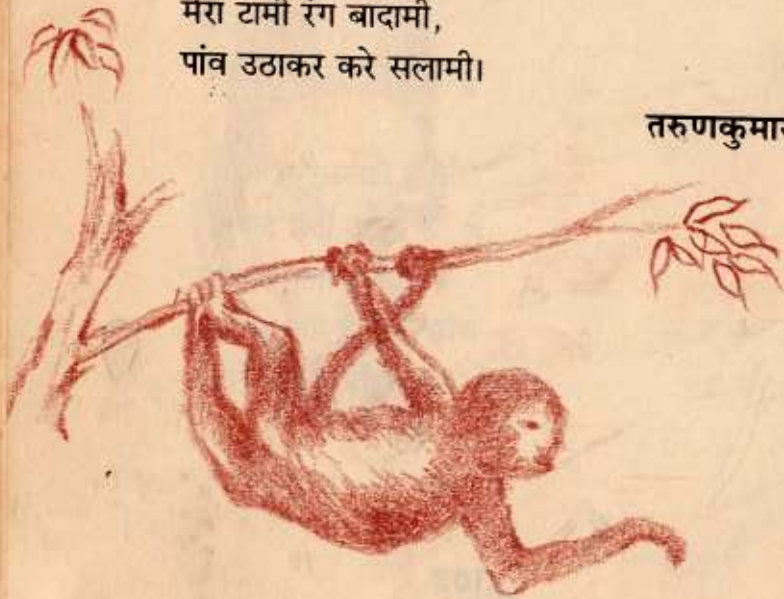 मेरा टामी रंग बादामी,
पांव उठाकर करे सलामी।
तरुणकुमार